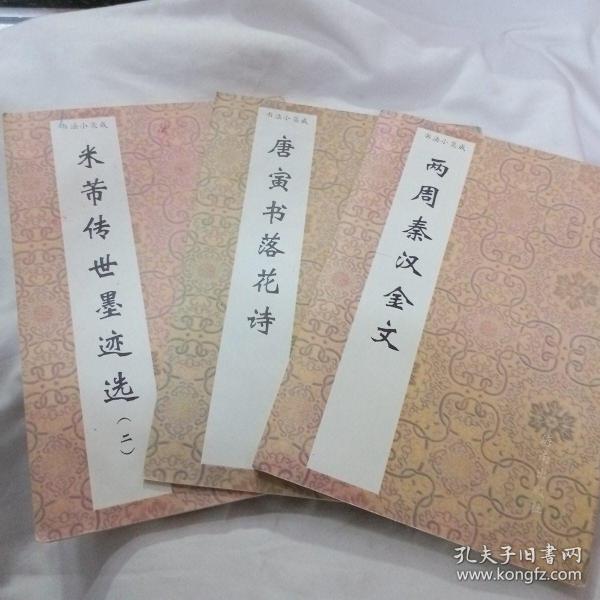 书法小集成
米芾传世墨迹选（二）
书法小集成
唐寅书落花诗
书法小集成
两周秦汉金文
孔夫子旧书网
www.kongfz.com